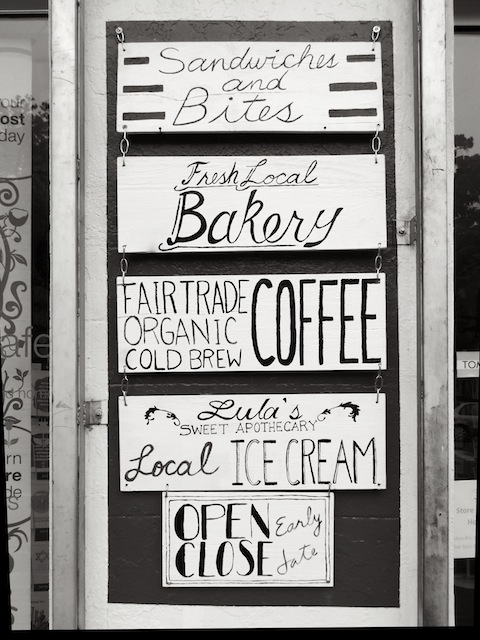 Sandwiches
and
Bites
Fresh Local
Bakery
FAIR TRADE
ORGANIC
COLD BREW
COFFEE
Lula's
SWEET APOTHECARY
Local ICE CREAM
OPEN Early
CLOSE Late
your
ost
day
afe
rn
re
de
TOM
Store